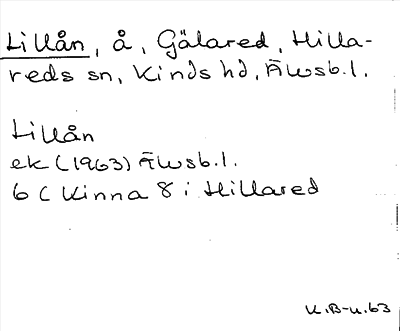 Lillån, å, Gälared, Hilla-
reds sn, Kinds hd, Älvsb.l.
Lillån
ek (1963) Älvsb.l.
6 C Kinna 8 i Hillared
K.B-u.63